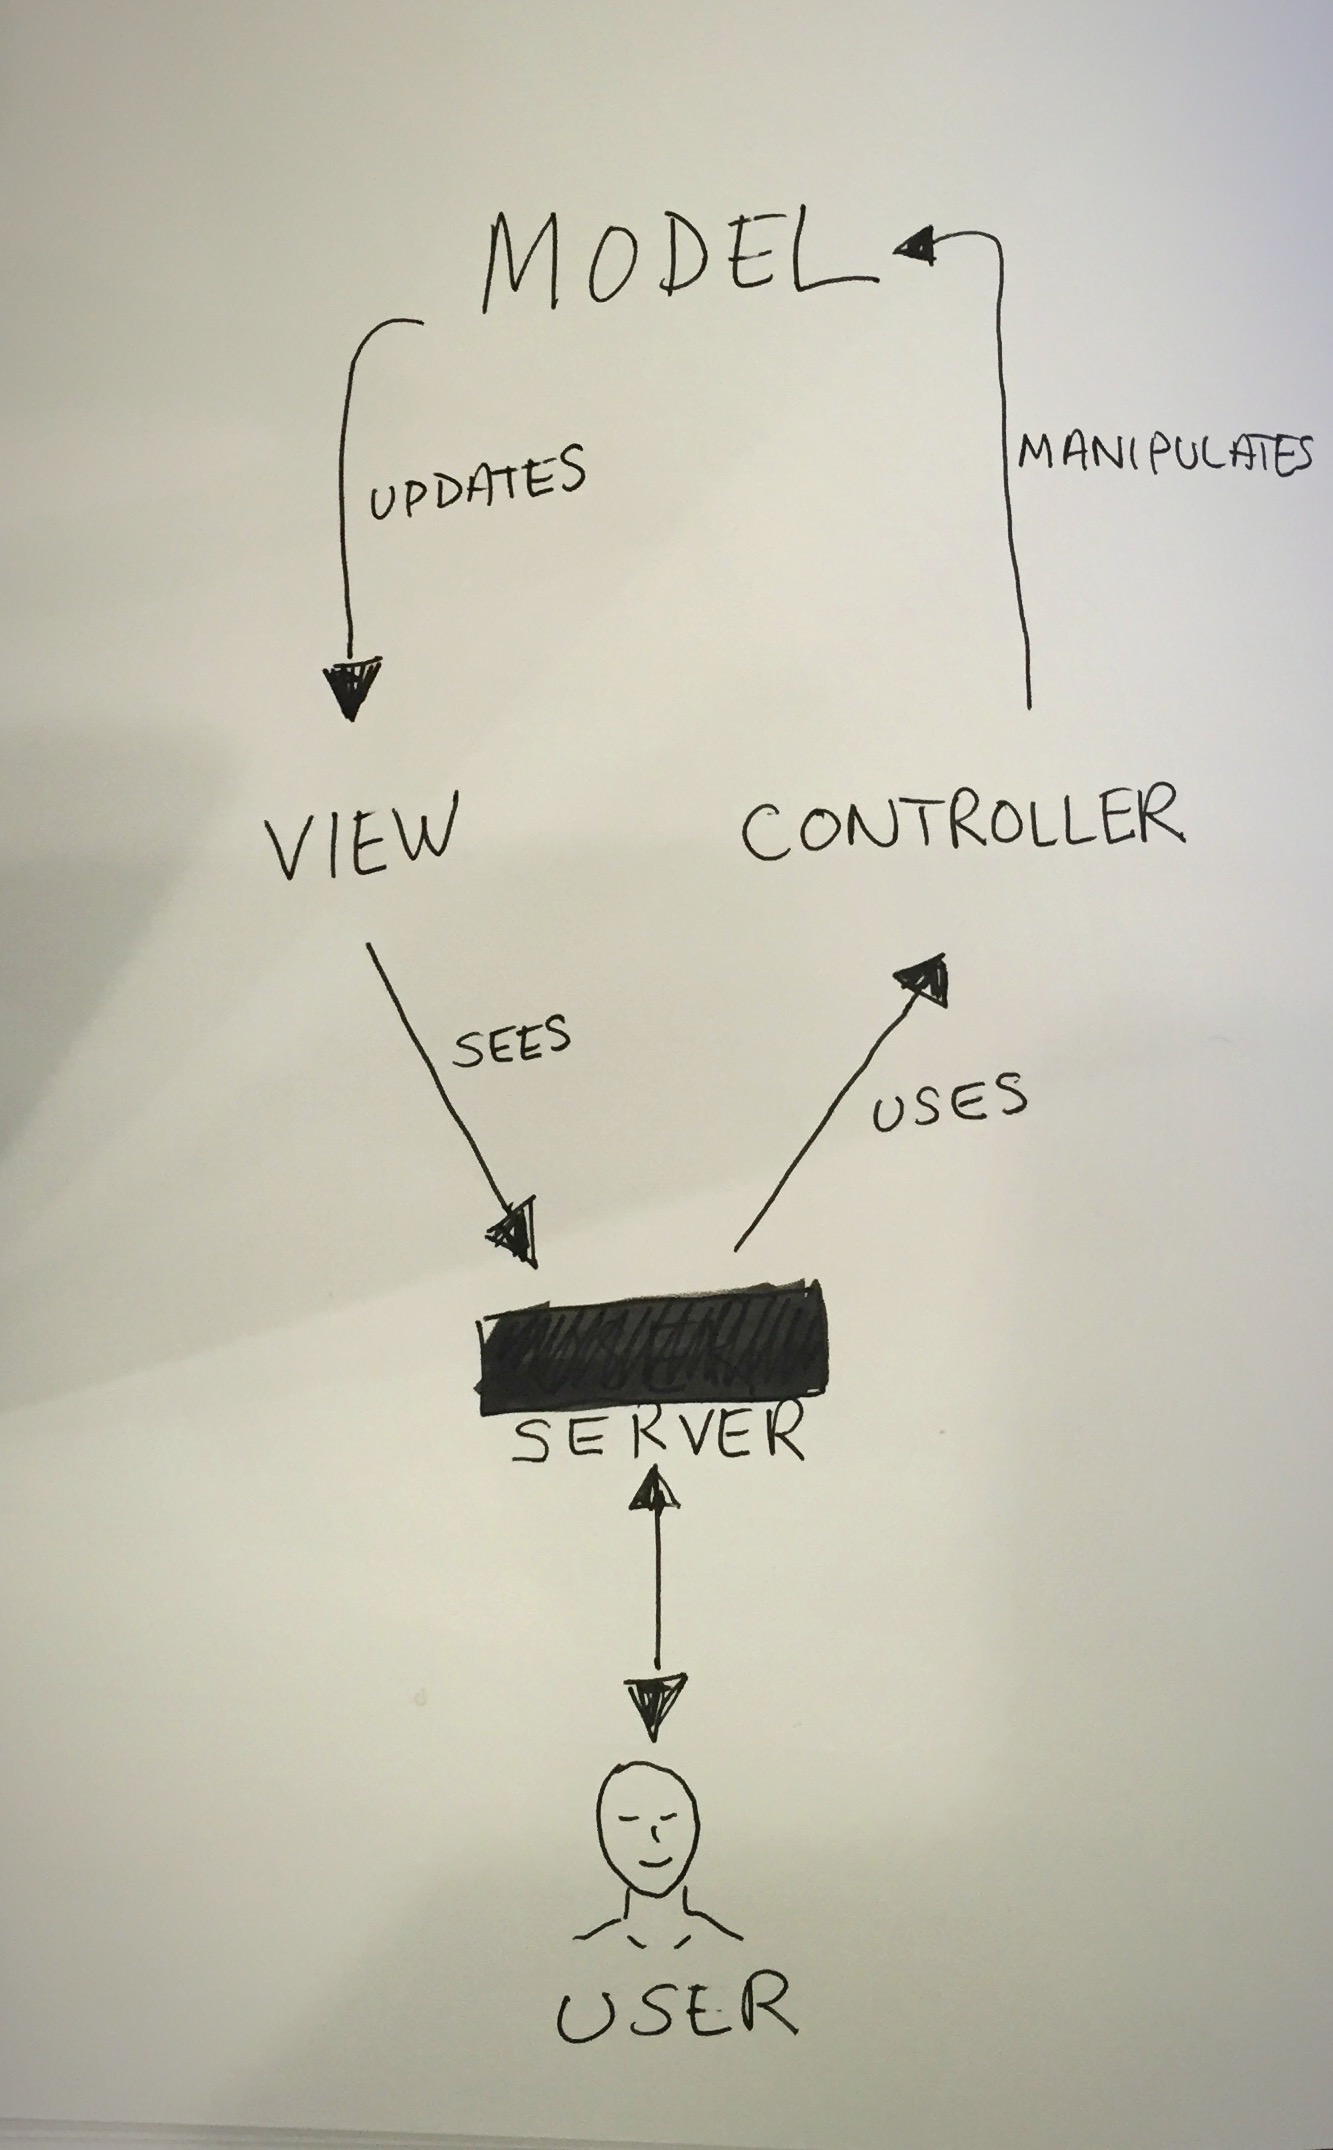 MODEL
UPDATES
MANIPULATES
VIEW
CONTROLLER
SEES
USES
SERVER
USER